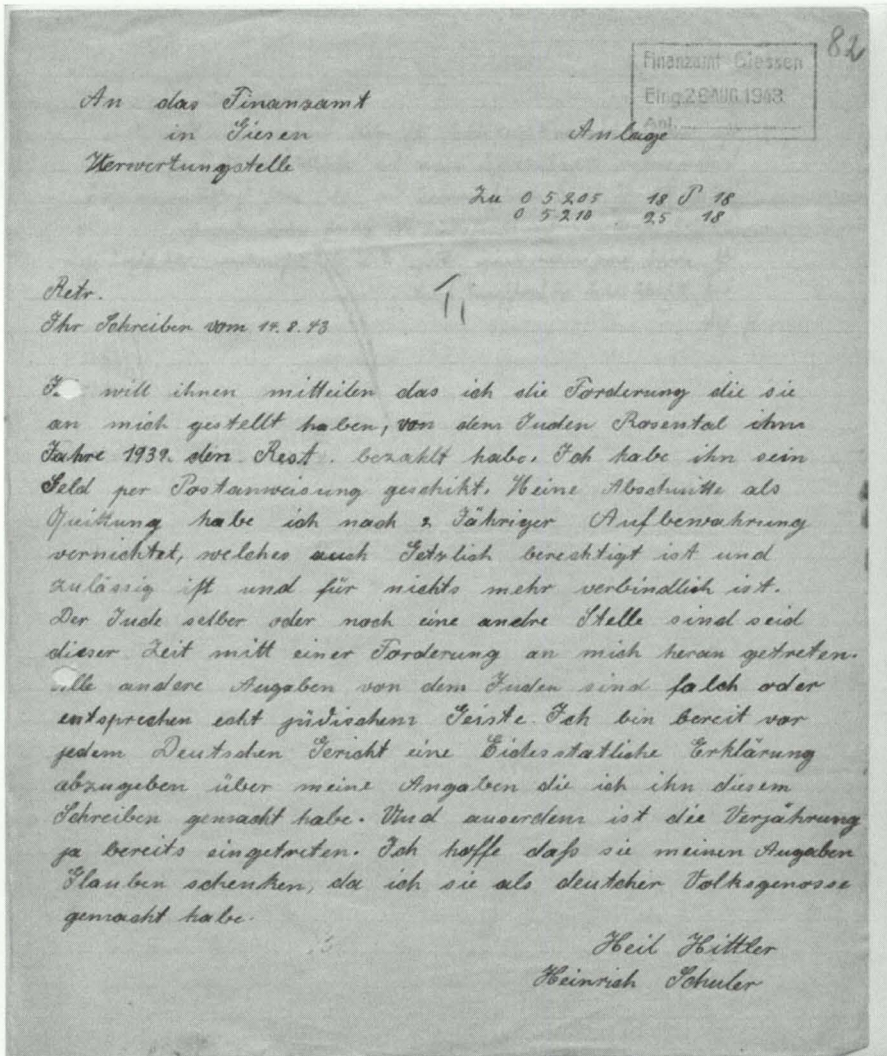 82
Finanzamt Giessen
Eing. 26 AUG. 1943
Anl.
An das Finanzamt
in Giesen
Verwertungstelle
Anlage
Zu O 5205 18 P 18
O 5210 25 18
Betr.
Ihr Schreiben vom 14.8.43
will ihnen mitteilen das ich die Forderung die sie
an mich gestellt haben, von dem Juden Rosental ihm
Jahre 1939. den Rest. bezahlt habe. Ich habe ihn sein
Geld per Postanweisung geschikt. Meine Abschnitte als
Quittung habe ich nach 2 Jähriger Aufbewahrung
vernichtet, welches auch Getzlich berechtigt ist und
zulässig ist und für nichts mehr verbindlich ist.
Der Jude selber oder noch eine andre Stelle sind seid
dieser Zeit mitt einer Forderung an mich heran getreten.
andere Angaben von dem Juden sind falch oder
entsprechen echt jüdischem Geiste. Ich bin bereit vor
jedem Deutschen Gericht eine Eidesstatliche Erklärung
abzugeben über meine Angaben die ich ihn diesem
Schreiben gemacht habe. Und auserdem ist die Verjährung
ja bereits eingetreten. Ich hoffe daß sie meinen Angaben
Glauben schenken, da ich sie als deutcher Volksgenosse
gemacht habe.
Heil Hittler
Heinrich Schuler